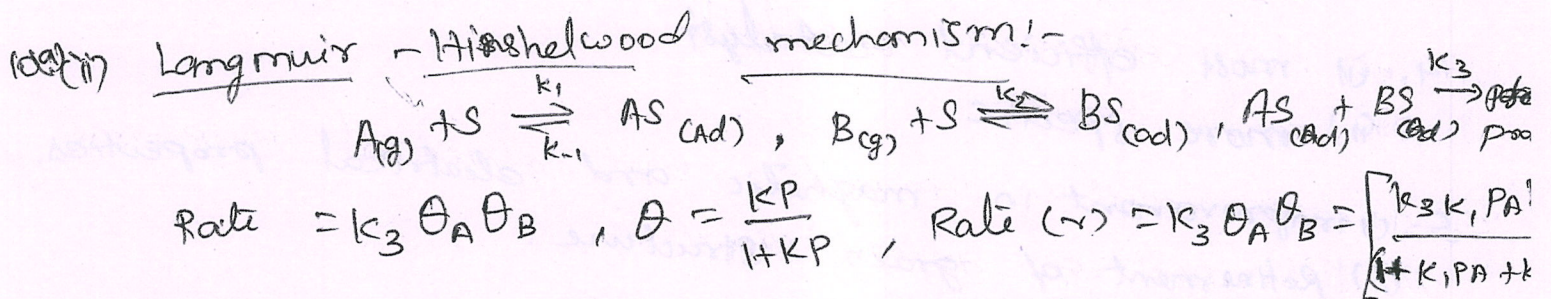 Langmuir - Hinshelwood mechanism:-
A(g) + S ⇌ AS (Ad), B(g) + S ⇌ BS (ad), AS (ad) + BS (ad) →
k₁ k₋₁ k₂ k₃
Rate = k₃ θA θB, θ = KP / 1+KP, Rate (r) = k₃ θA θB = [k₃ K₁ PA / (1+ K₁PA +k